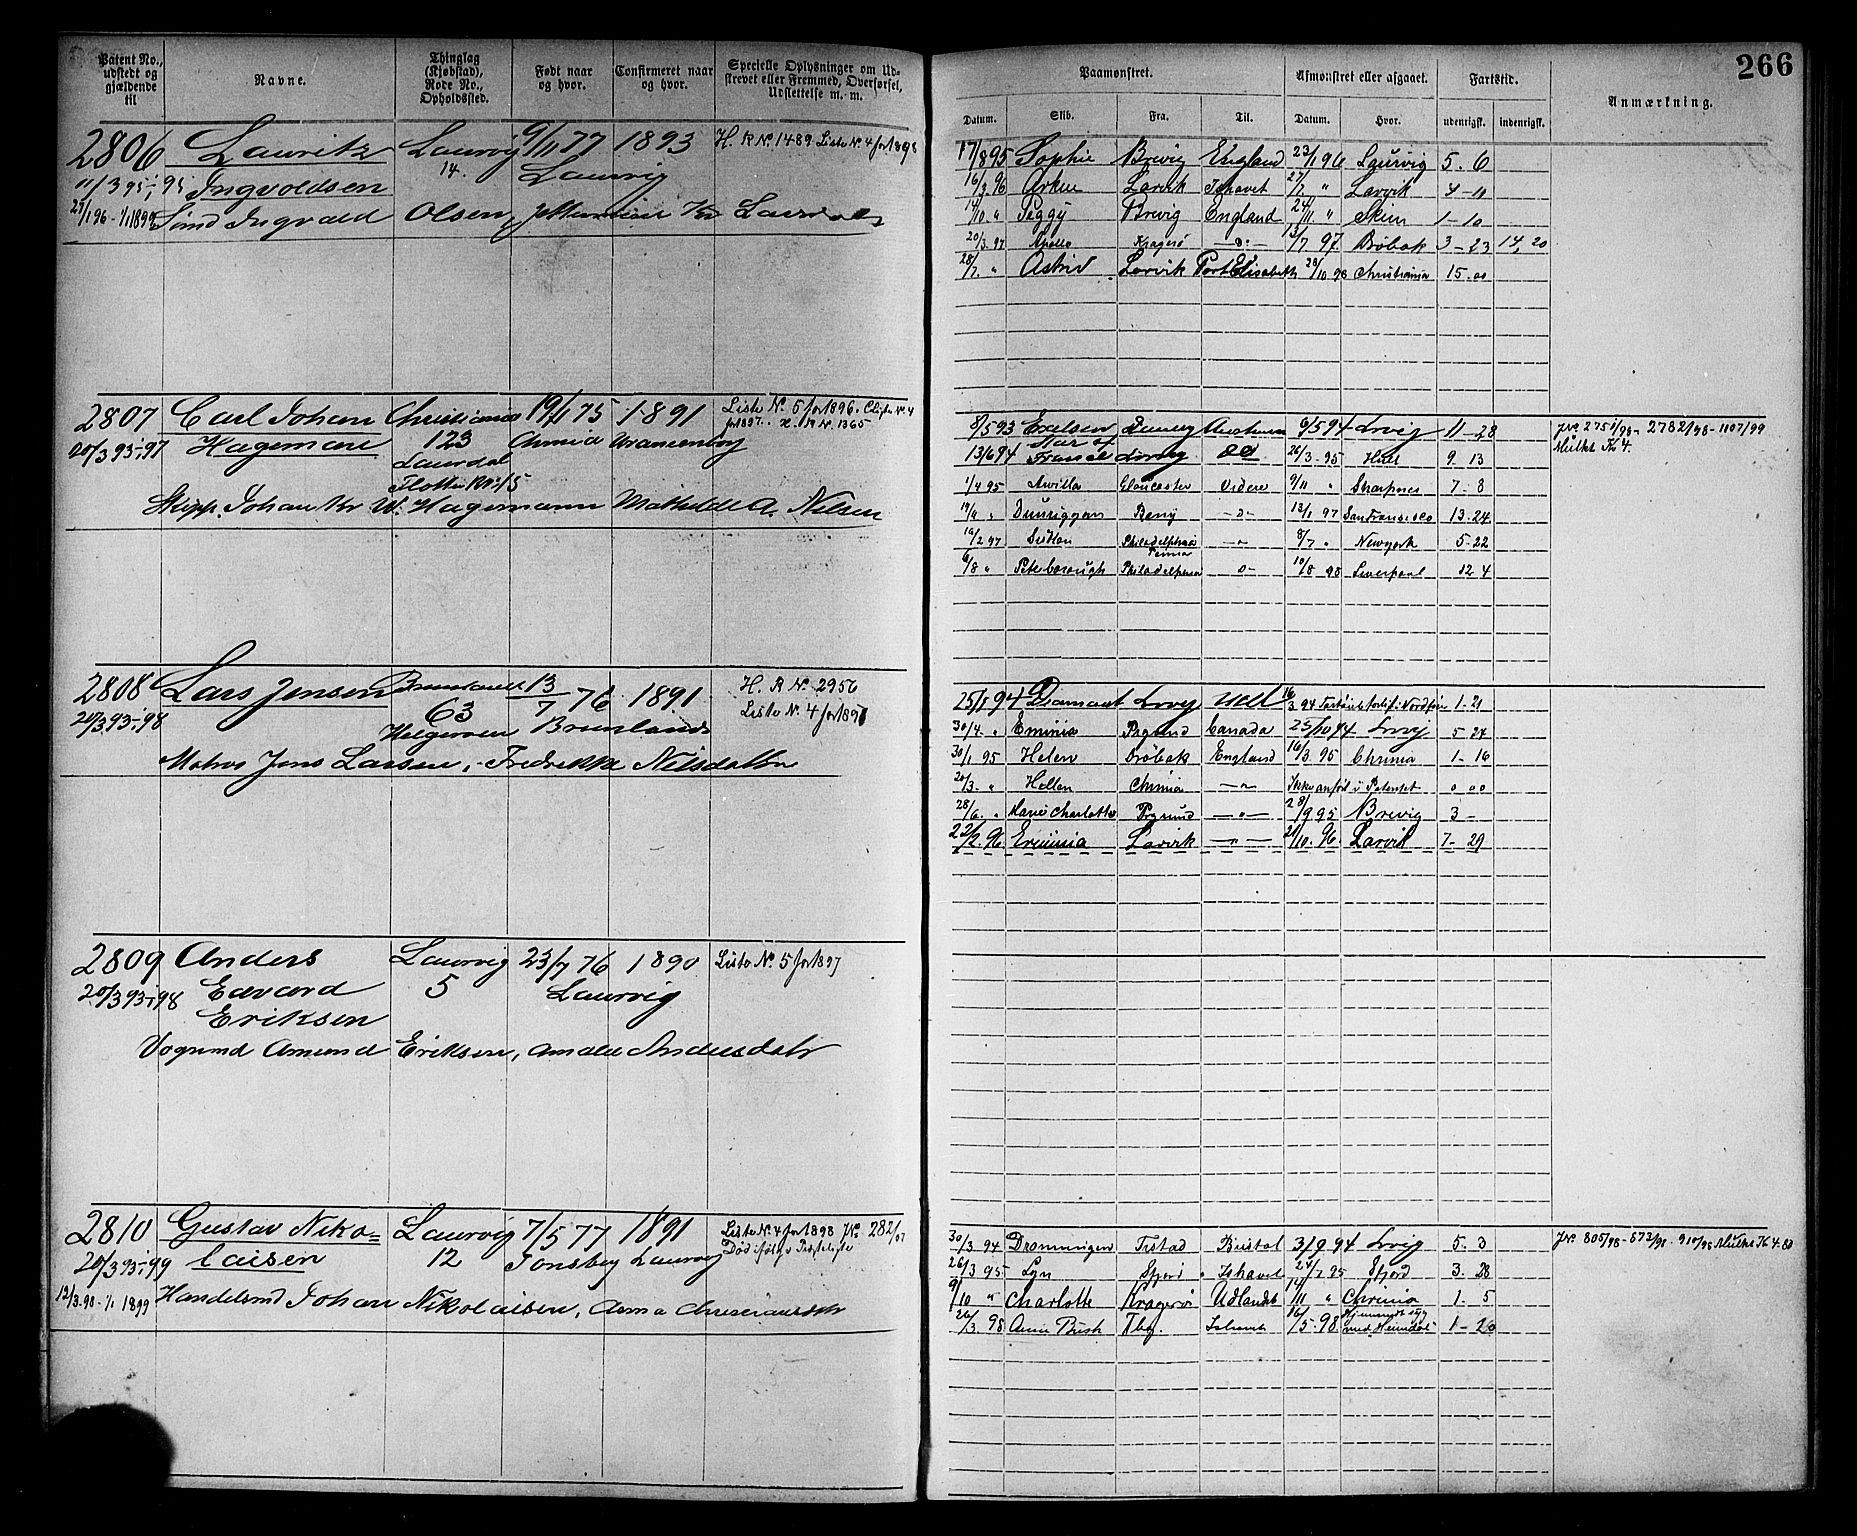 266
Patent No., udstedt og gjældende til
Navne.
Thinglag (Kjøbstad), Rode No., Opholdssted.
Født naar og hvor.
Confirmeret naar og hvor.
Specielle Oplysninger om Udskrevet eller Fremmed, Overførsel, Udslettelse m. m.
Paamønstret.
Afmønstret eller afgaaet.
Fartstid.
Anmærkning.
Datum. Skib. Fra. Til. Datum. Hvor. udenrigsk. indenrigsk.
2806 Lauritz Laurvig 9/11 77 1893 H. R No. 1489 Liste No. 4 for 1898
11/3 95 - 95 Ingvoldsen 14. Laurvig
27/1 96 - 1/1 1899 Ingvald Olsen,
17/8 95 Sophie Brevig England 23/1 96 Laurvig 5 - 6
16/3 96 Larvik Ishavet 27/7 " Larvik 4 - 11
14/10 " Peggy Brevig England 24/11 " Skien 1 - 10
20/3 97 Apollo Kragerø - " - 13/7 97 3 - 23 14, 20
28/7 " Astrid Larvik Port Elisabeth 28/10 98 Christiania 15 - 00
2807 Carl Johan Christiania 19/1 75 1891 Liste No. 5 for 1896. No. 4
for 1897. H. R No. 1365
20/3 93 - 97 Hagemann 123
Laurdal
Johan W. Hagemann Mathilde A. Nilsen
8/5 93 6/5 94 Lrvig 11 - 28
13/6 94 26/3 - 95 Hull 9 13
1/4 95 Gloucester Videre 9/11 " Sharpnes 7 - 8
- " - 13/1 97 San Fransisco 13 - 24
97 Philadelphia - " 8/7 " Newyork 5 - 22
6/8 " Peterborough Philadelphia 10/8 98 Liverpool 12 4
2782/98 - 1107/99
Mulkt K 4.
2808 Lars Jensen Brunlanes 13/7 76 1891 H. R No. 2956
20/3 93 - 98 63 Brunlanes Liste No. 4 for 1898
Helgeroen
Matros Jens Larsen, Fredrikke Nilsdatter
25/1 94 Diamant Lrvig 16/3 94 1 - 21
30/4 " Canada 25/10 94 Lrvig 5 27
30/1 95 Helen Drøbak England 16/3 95 Chrinia 1 - 16
20/3 - " Hellen Chrinia - " - Ikke anført i Patentet 0 00
28/6 - " Marie Charlotte Prgrund - " - 28/9 95 Brevig 3 -
22/2 96 Larvik - " - 21/10 96 Larvik 7 - 29
2809 Anders Laurvig 23/7 76 1890 Liste No. 5 for 1897
20/3 93 - 98 Edvard 5 Laurvig
Eriksen
Vognmd Amund Eriksen, Amalie Andersdatr
2810 Gustav Niko= Laurvig 7/5 77 1891 Liste No. 4 for 1898 J No. 282/07
20/3 93 - 99 laisen 12 Tønsberg Laurvig Død ifølge
12/3 98 - 1/1 1899 Handelsmd Johan Nikolaisen, Anna
30/3 94 Dronningen Tistad Bristol 3/9 94 Lrvig 5 . 3
26/3 95 Lyn Sfjord Ishavet 24/7 95 Sfjord 3 . 28
9/10 " Charlotte Kragerø Udlandet 14/11 " Chrinia 1 . 5
26/3 98 Anna Tbg. Ishavet 16/5 98 med "Heimdal" 1 - 20
J No. 805/98 - 573/98 - 910/98 Mulkt K 4.80